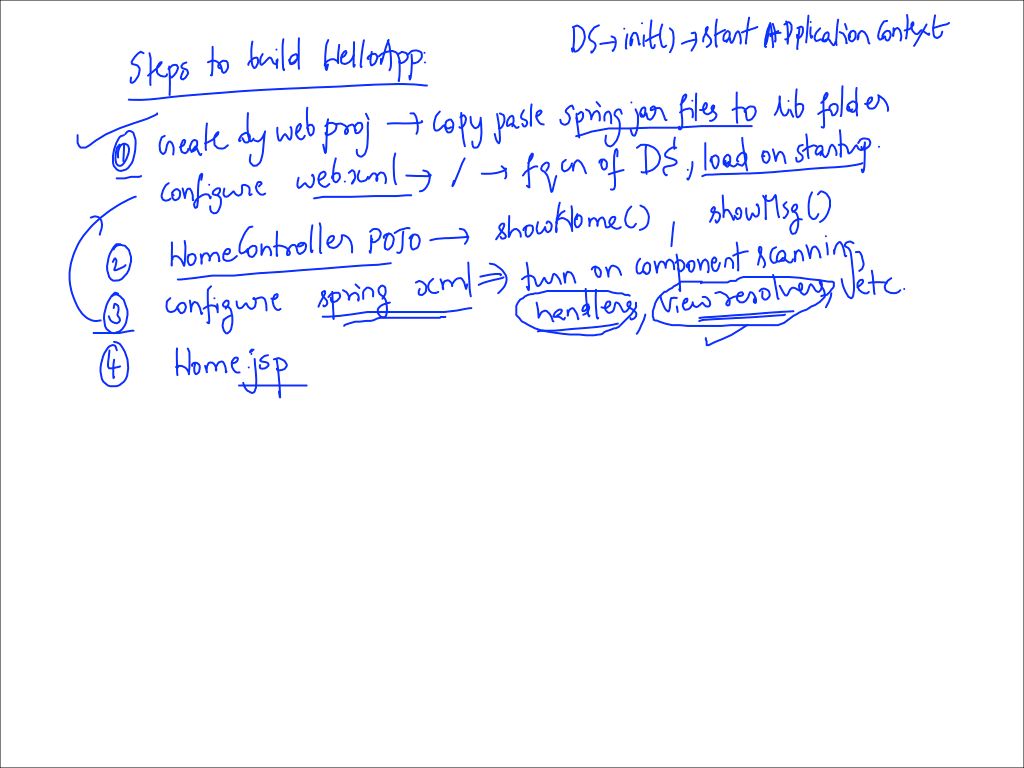 DS → init() → start Application Context
Steps to build HelloApp:
① create dy web proj → copy paste spring jar files to lib folder
configure web.xml → / → fqcn of DS, load on startup.
② HomeController POJO → showHome() , showMsg()
③ configure spring xml ⇒ turn on component scanning,
handlers, view resolvers, etc.
④ Home.jsp